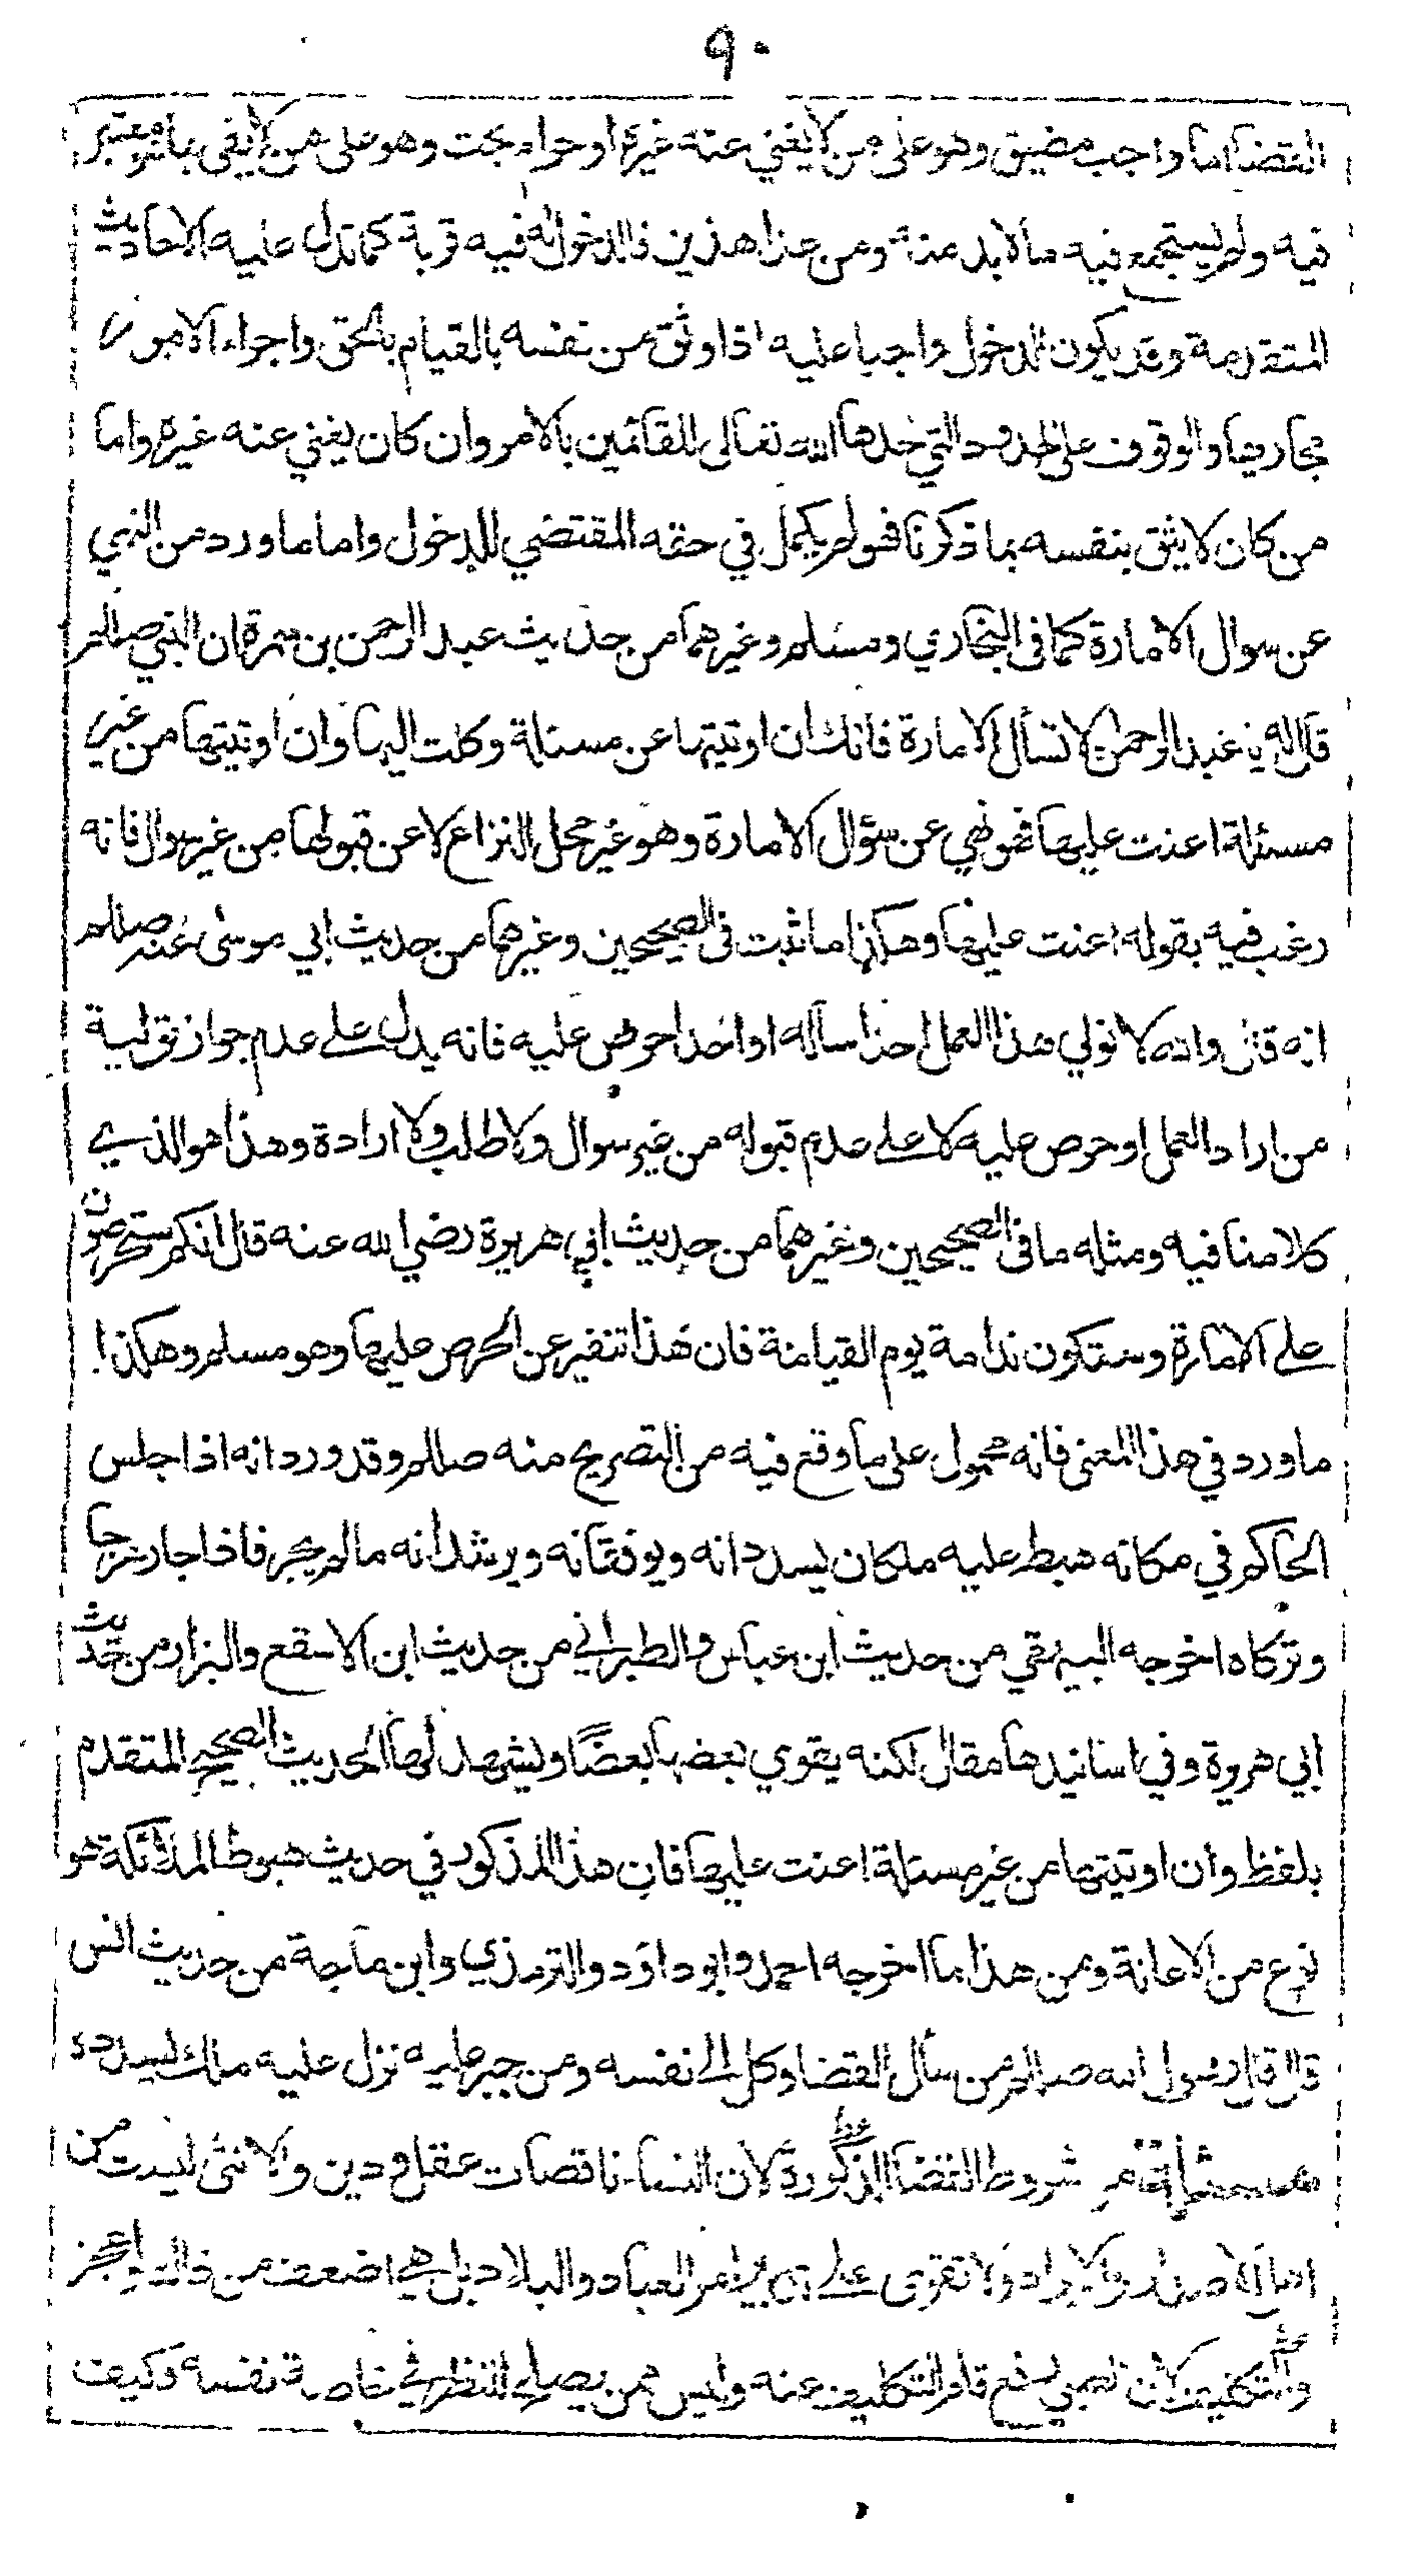 ٩٠
القضا اما واجب مضيق وهو على من لا يغني عنه غيره او حرام بحت وهو على من لا يفي بما يعتبر
فيه ولم يستجمع فيه ما لا بد عنه ومن عدا هذين فالدخول له فيه قربة كما تدل عليه الاحاديث
المتقدمة وقد يكون الدخول واجبا عليه اذا وثق من نفسه بالقيام بالحق واجراء الامور
مجاريها والوقوف على الحدود التي حدها الله تعالى للقائمين بالامر وان كان يغني عنه غيره واما
من كان لا يثق بنفسه بما ذكرنا فهو لم يكمل في حقه المقتضي للدخول واما ما ورد من النهي
عن سوال الامارة كما فى البخاري ومسلم وغيرهما من حديث عبد الرحمن بن سمرة ان النبي صللم
قال له يا عبد الرحمن لا تسأل الامارة فانك ان اوتيتها عن مسئلة وكلت اليها وان اوتيتها من غير
مسئلة اعنت عليها فهو نهي عن سؤال الامارة وهو غير محل النزاع لا عن قبولها من غير سوال فانه
رغب فيه بقوله اعنت عليها وهكذا ما ثبت فى الصحيحين وغيرهما من حديث ابي موسى عنه صللم
انه قال والله لا نولي هذا العمل احدا سأله او احدا حرص عليه فانه يدل على عدم جواز تولية
من اراد العمل او حرص عليه لا على عدم قبوله من غير سوال ولا طلب ولا ارادة وهذا هو الذي
كلامنا فيه ومثله ما فى الصحيحين وغيرهما من حديث ابي هريرة رضي الله عنه قال انكم ستحرصون
على الامارة وستكون ندامة يوم القيامة فان هذا تنفير عن الحرص عليها وهو مسلم وهكذا
ما ورد في هذا المعنى فانه محمول على ما وقع فيه من التصريح منه صللم وقد ورد انه اذا جلس
الحاكم في مكانه هبط عليه ملكان يسددانه ويوفقانه ويرشدانه ما لم يجر فاذا جار عرجا
وتركاه اخرجه البيهقي من حديث ابن عباس والطبراني من حديث ابن الاسقع والبزار من حديث
ابي هريرة وفي اسانيدها مقال لكنه يقوي بعضها بعضًا ويشهد لها الحديث الصحيح المتقدم
بلفظ وان اوتيتها من غير مسئلة اعنت عليها فان هذا المذكور في حديث هبوط الملائكة هو
نوع من الاعانة ومن هذا ما اخرجه احمد وابو داؤد والترمذي وابن ماجة من حديث انس
قال قال رسول الله صللم من سأل القضا وكل الى نفسه ومن جبر عليه نزل عليه ملك يسدده
شروط القضا المذكورة لان النساء ناقصات عقل ودين والانثى ليست من
ولا تقوى على امر العباد والبلاد بل هي اضعف من ذلك واعجز
والتكليف لان الصبي رفع قلم التكليف عنه وليس ممن يصلح للنظر في خاصة نفسه وكيف